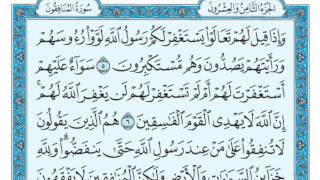 الجزء الثامن والعشرون
سورة المنافقون
وَإِذَا قِيلَ لَهُمْ تَعَالَوْا يَسْتَغْفِرْ لَكُمْ رَسُولُ اللَّهِ لَوَّوْا رُءُوسَهُمْ
وَرَأَيْتَهُمْ يَصُدُّونَ وَهُم مُّسْتَكْبِرُونَ ٥ سَوَاءٌ عَلَيْهِمْ
أَسْتَغْفَرْتَ لَهُمْ أَمْ لَمْ تَسْتَغْفِرْ لَهُمْ لَن يَغْفِرَ اللَّهُ لَهُمْ
إِنَّ اللَّهَ لَا يَهْدِي الْقَوْمَ الْفَاسِقِينَ ٦ هُمُ الَّذِينَ يَقُولُونَ
لَا تُنفِقُوا عَلَىٰ مَنْ عِندَ رَسُولِ اللَّهِ حَتَّىٰ يَنفَضُّوا وَلِلَّهِ
خَزَائِنُ السَّمَاوَاتِ وَالْأَرْضِ وَلَٰكِنَّ الْمُنَافِقِينَ لَا يَفْقَهُونَ